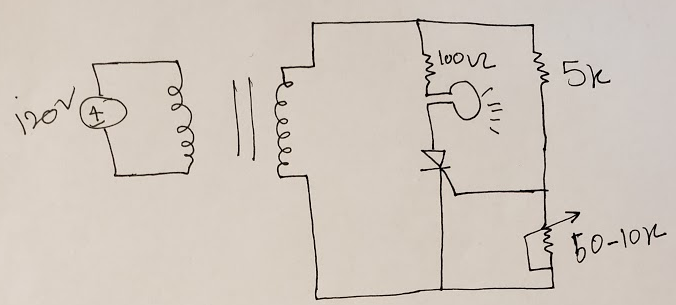 120V
100Ω
5k
50-10k